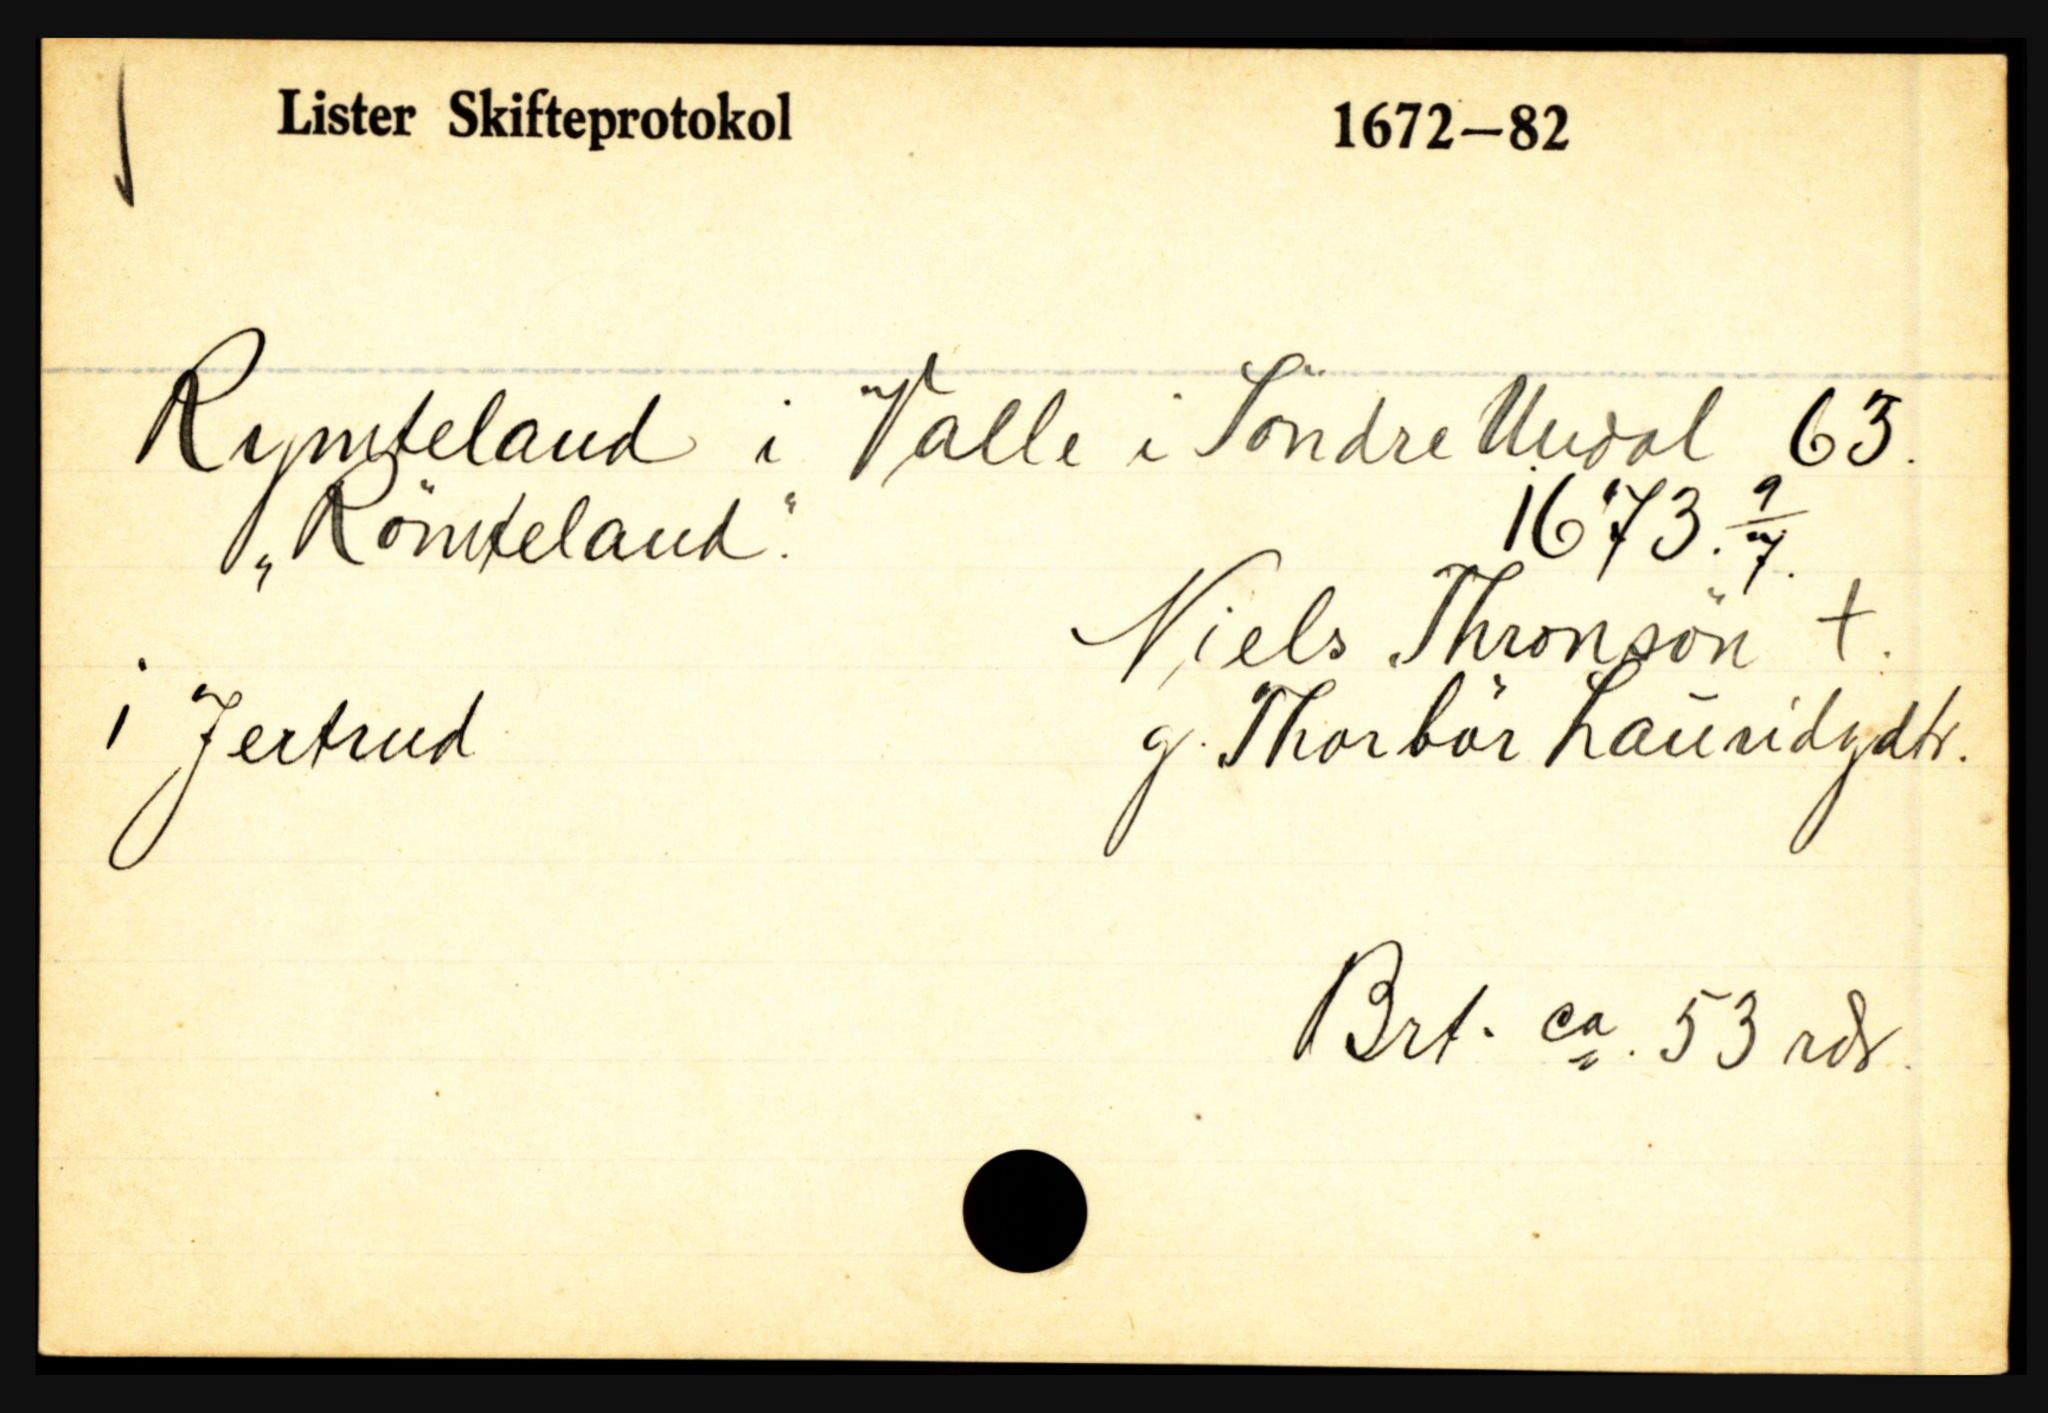 Lister Skifteprotokol 1672—82
Rymteland i Valle i Söndre Undal 63.
„Römteland". 1673. 9/7.
Niels Thronsön †.
1 Jertrud g. Thorbör Lauridsdtr.
Brt. ca. 53 rdr.